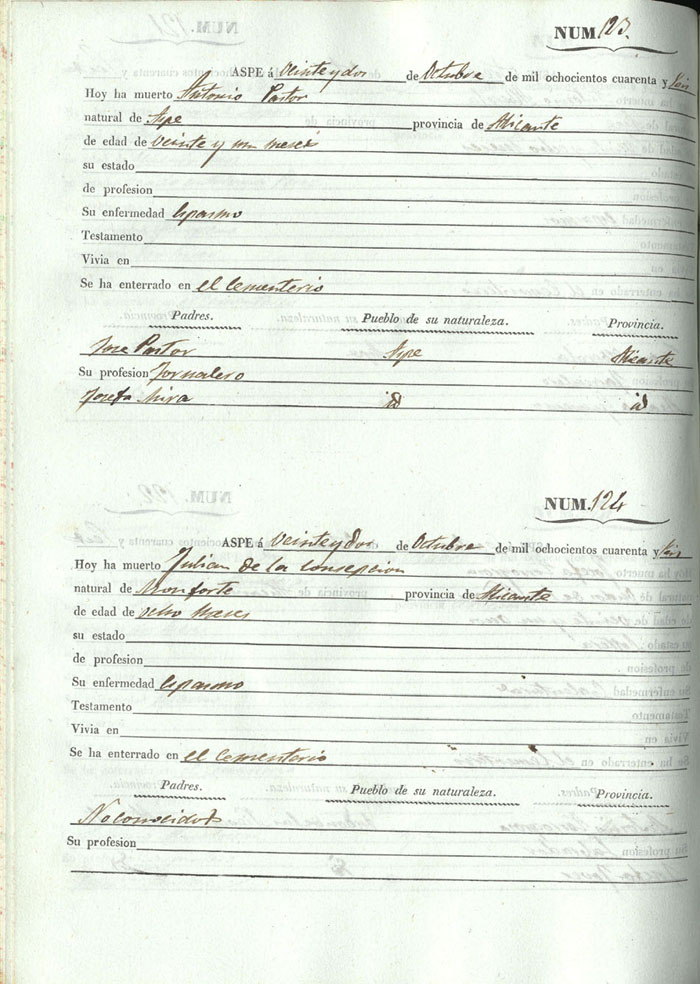 NUM. 123.
ASPE á Veinteydos de Octubre de mil ochocientos cuarenta y seis
Hoy ha muerto Antonio Pastor
natural de Aspe provincia de Alicante
de edad de veinte y un meses
su estado
de profesion
Su enfermedad Espasmo
Testamento
Vivia en
Se ha enterrado en el Cementerio
Padres. Pueblo de su naturaleza. Provincia.
Jose Pastor Aspe Alicante
Su profesion Jornalero
Josefa Mira id id
NUM. 124
ASPE á Veinteydos de Octubre de mil ochocientos cuarenta y seis
Hoy ha muerto Julian de la Consepcion
natural de Monforte provincia de Alicante
de edad de ocho meses
su estado
de profesion
Su enfermedad Espasmo
Testamento
Vivia en
Se ha enterrado en el Cementerio
Padres. Pueblo de su naturaleza. Provincia.
No conocidos
Su profesion